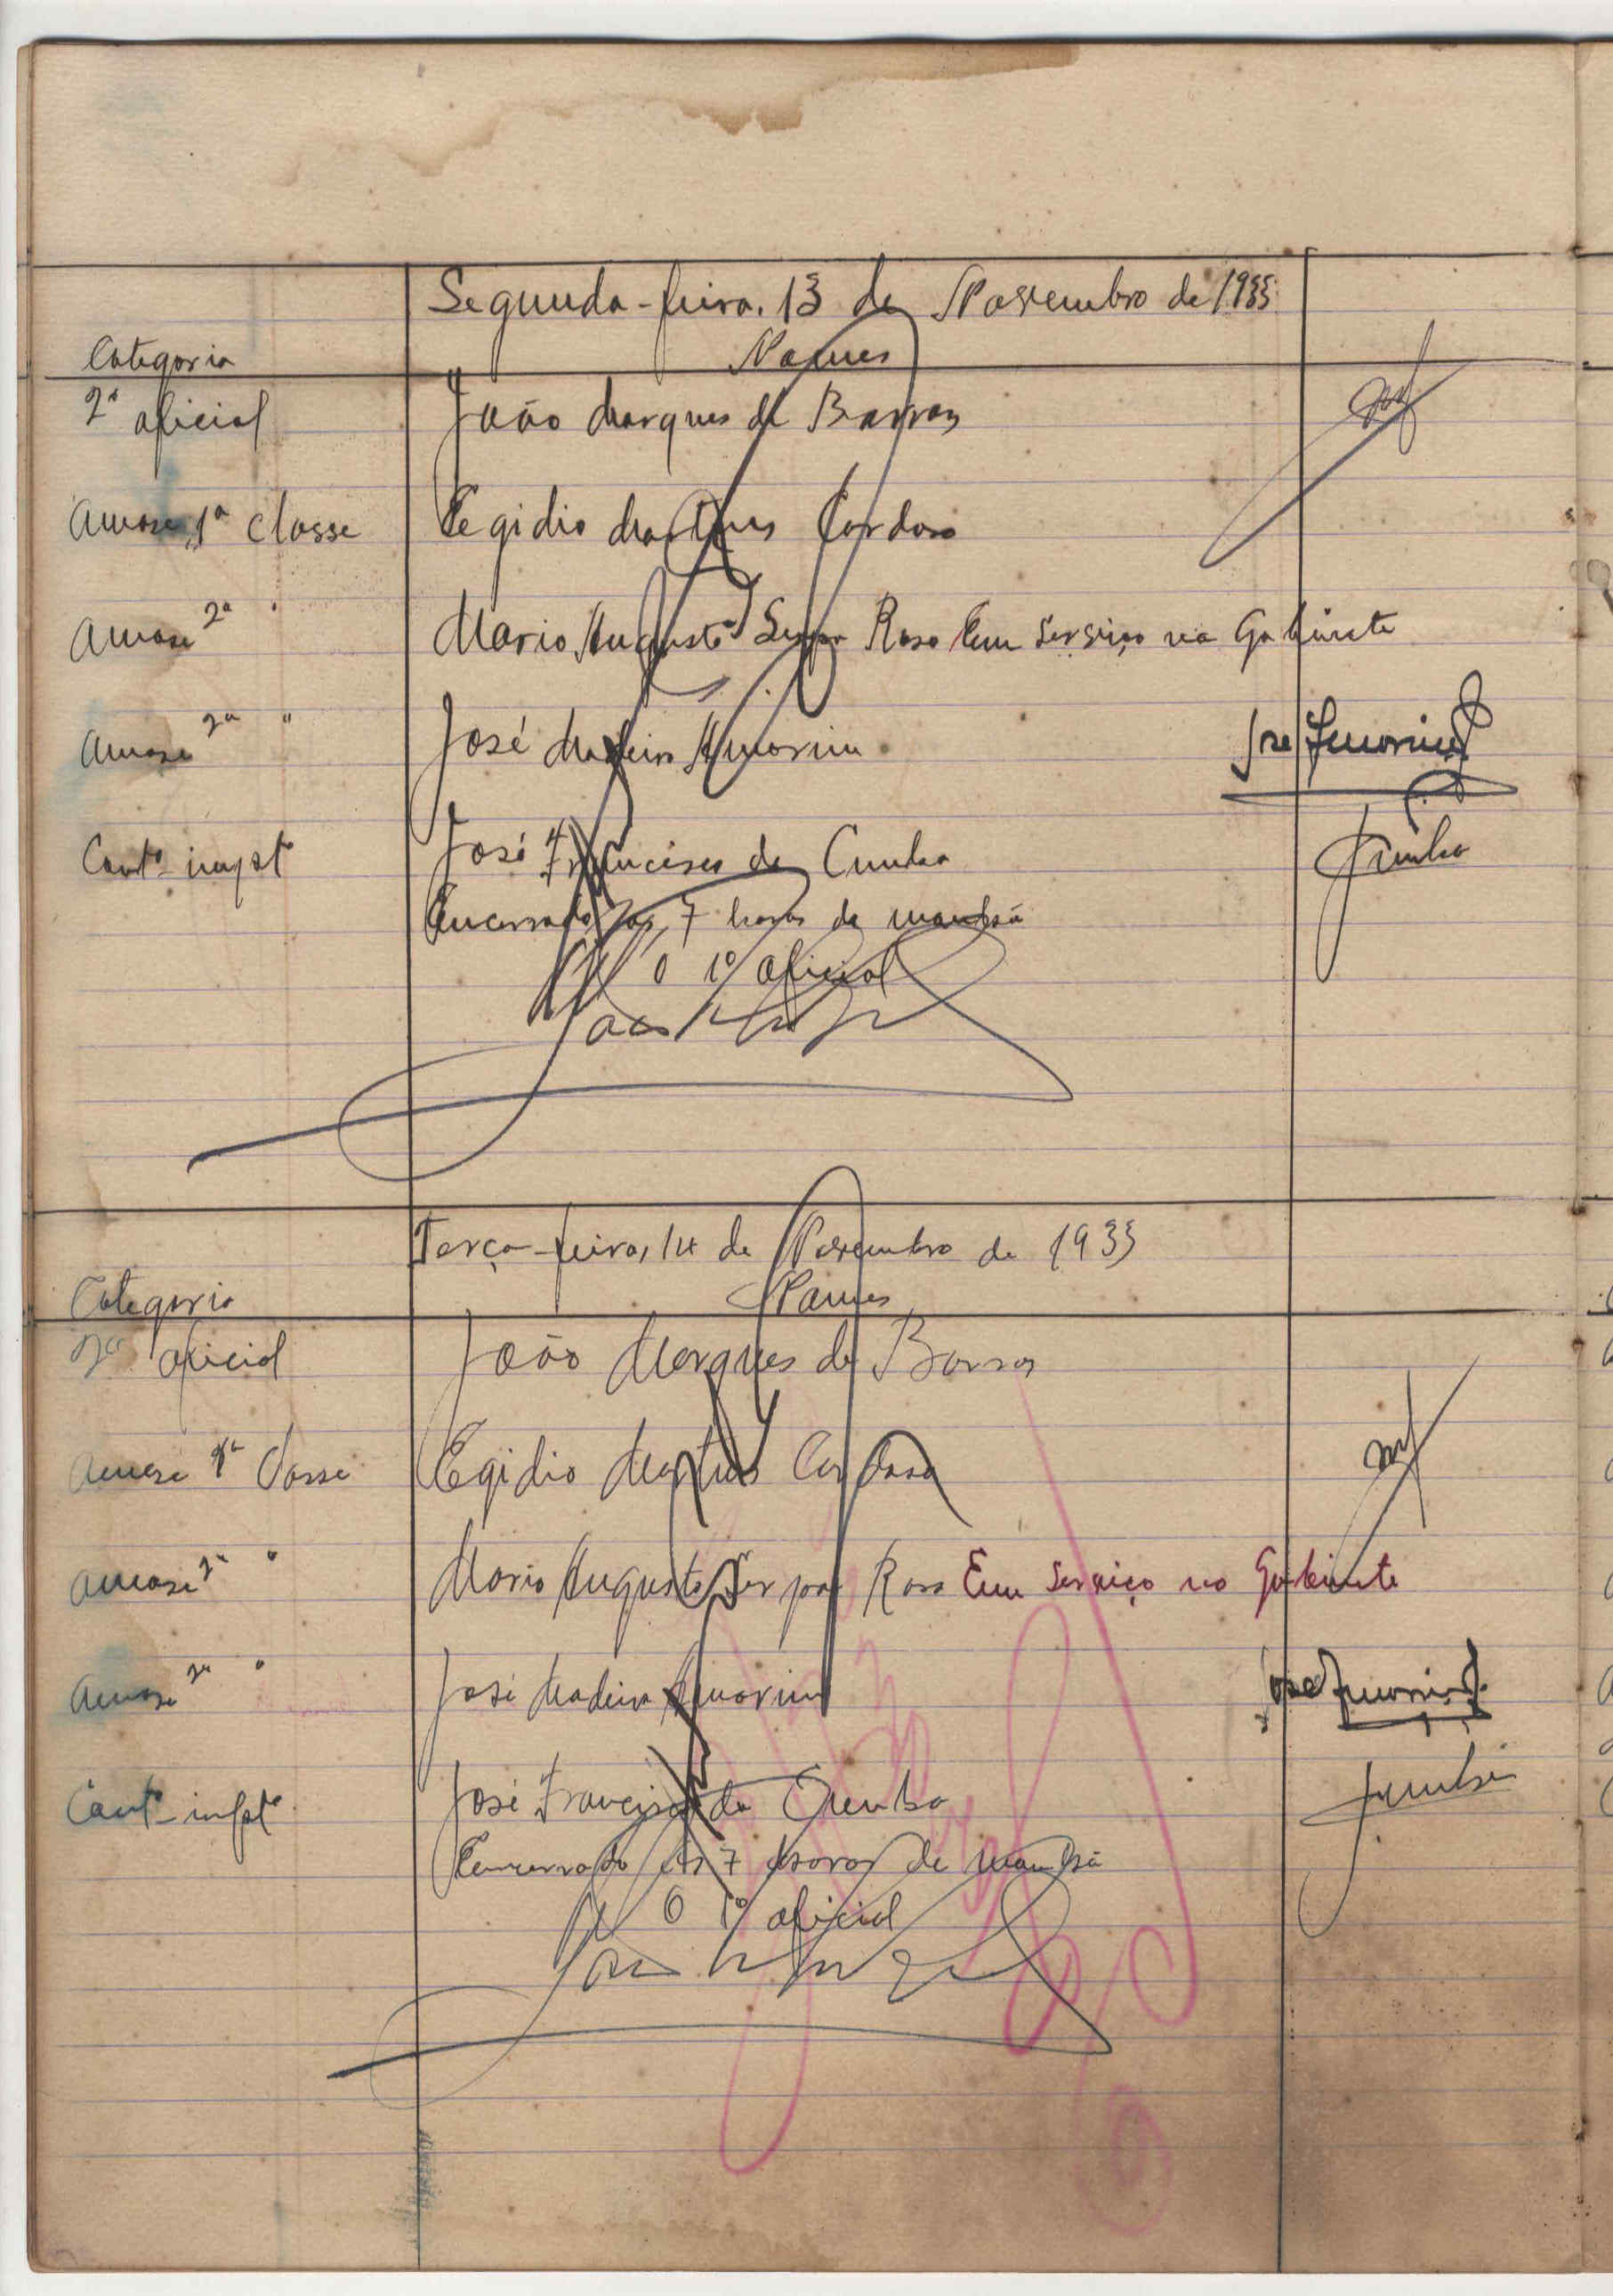 Segunda-feira, 13 de Novembro de 1933
Categoria Nomes
2º oficial João Marques de Barros
Amase 1ª classe Egidio Martins Cardoso
Amase 2ª " Mario Augusto Serpa Rosa Em serviço no Gabinete
Amase 2ª " José Madeira Amorim José Amorim
Cont. impt. José Francisco da Cunha Cunha
Encerrado ás 7 horas da manhã
O 1º oficial
Terça-feira, 14 de Novembro de 1933
Categoria Nomes
2º oficial João Marques de Barros
Amase 1ª classe Egidio Martins Cardoso
Amase 2ª " Mario Augusto Serpa Rosa Em serviço no Gabinete
Amase 2ª " José Madeira Amorim José Amorim
Cont. impt. José Francisco da Cunha Cunha
Encerrado ás 7 horas da manhã
O 1º oficial